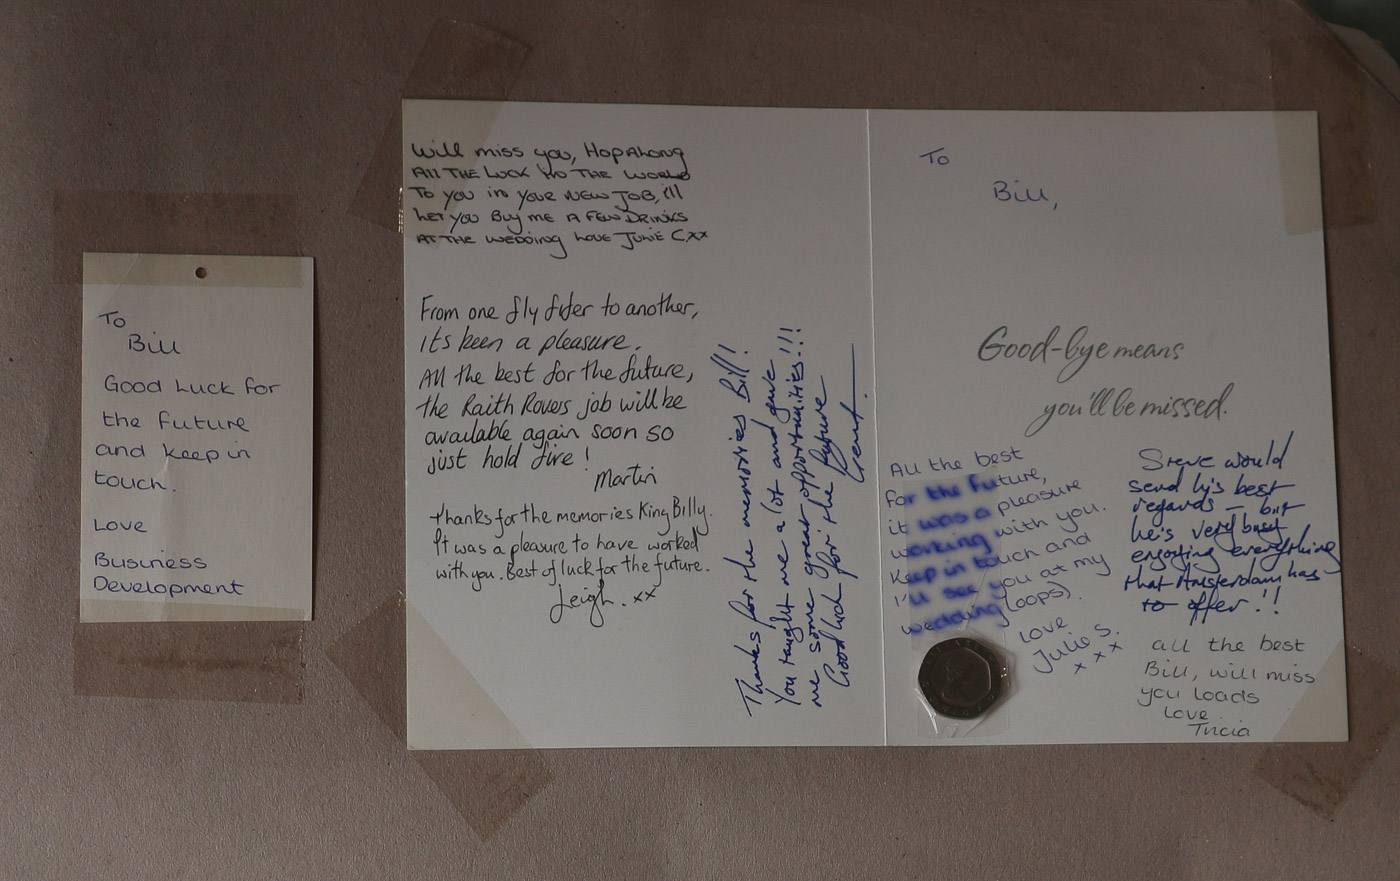 To
Bill
Good Luck for
the future
and keep in
touch.
Love
Business
Development
Will miss you, Hopalong
All the luck in the world
To you in your new job, i'll
let you buy me a few drinks
at the wedding love Julie C xx
From one fly fifer to another,
its been a pleasure.
All the best for the future,
the Raith Rovers job will be
available again soon so
just hold fire!
Martin
Thanks for the memories King Billy.
It was a pleasure to have worked
with you. Best of luck for the future.
Leigh. xx
Thanks for the memories Bill!
You taught me a lot and gave
me some great opportunities!!!
Good luck for the future
To
Bill,
Good-bye means
you'll be missed.
All the best
for the future,
it was a pleasure
working with you.
Keep in touch and
I'll see you at my
wedding (oops).
Love
Julie S.
x x x
Steve would
send his best
regards – but
he's very busy
enjoying everything
that Amsterdam has
to offer!!
all the best
Bill, will miss
you loads
Love
Tricia